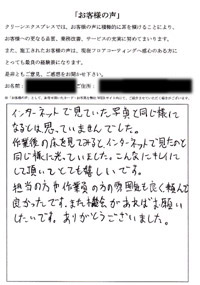 「お客様の声」
クリーンエクスプレスでは、お客様の声に積極的に耳を傾けることにより、
お客様への更なる品質、業務改善、サービスの充実に努めてまいります。
また、施工されたお客様の声は、現在フロアコーティングへ感心のある方に
とっても最良の経験談になります。
是非ともご意見、ご感想をお聞かせ下さい。
お名前
ご住所
インターネットで見ていた写真と同じ様に
なるとは思っていませんでした。
作業後の床を見てみるとインターネットで見たのと
同じ様に光っていました。こんなにキレイに
して頂いてとても嬉しいです。
担当の方や作業員の方の雰囲気も良く頼んで
良かったです。また機会があればお願い
したいです。ありがとうございました。